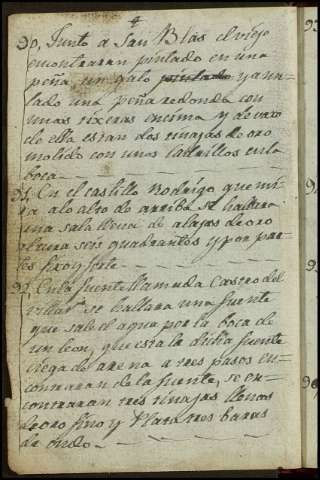 4
90, Junto a San Blas el viejo
encontraran pintado en una
peña un galo pintado y a un
lado una peña redonda con
unas rixeras encima y devaxo
de ella estan dos tinajas de oro
molido con unos ladrillos en la
boca
91. En el castillo Rodrigo que mi=
ra alo alto de arriba se hallara
una sala llena de alajas de oro
seis y por par=
tes fixo y forte
92. En la fuente llamada Castro del
Villar se hallara una fuente
que sale el agua por la boca de
un leon, que esta la dicha fuente
ciega de arena a tres pasos en=
contraran de la fuente, se en=
contraran tres tinajas llenas
de oro fino y Plata tres baras
de ondo